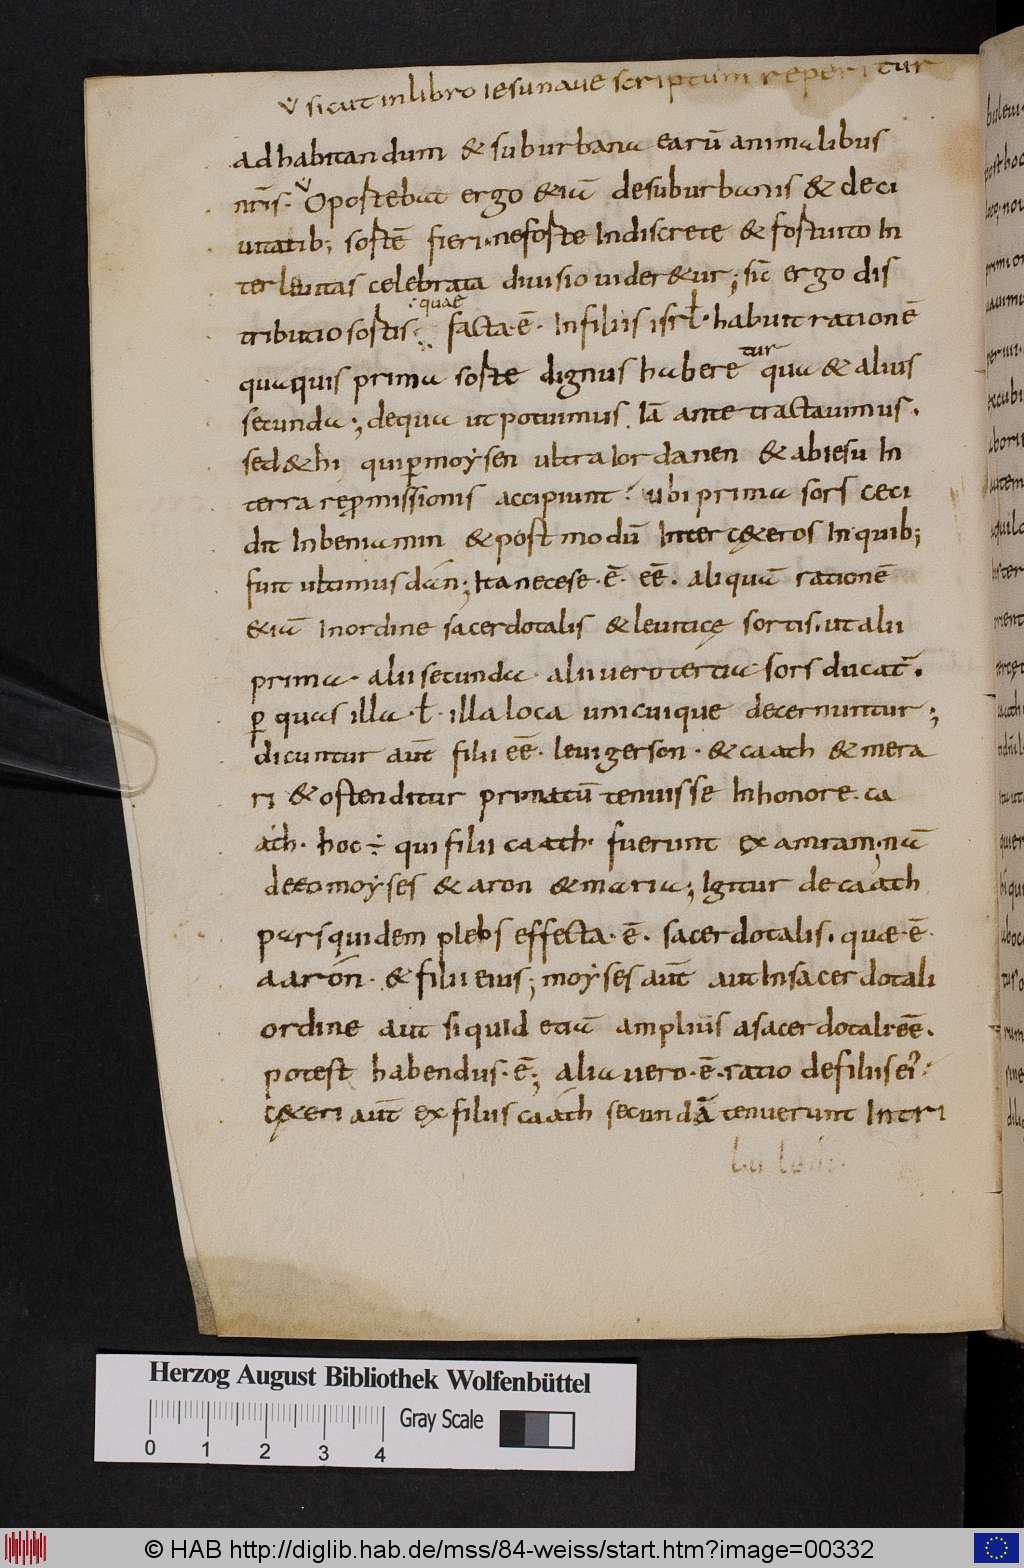 v sicut in libro iesu naue scriptum reperitur
ad habitandum & suburbana earū animalibus
nr̄is. v Oportebat ergo &iā de suburbanis & de ci
uitatib; sortē fieri. ne forte Indiscrete & fortuito In
ter leuitas celebrata diuisio uider&ur; sic̄ ergo dis
quae
tributio sortis facta·ē· In filiis isrl̄· habuit rationē
tur
qua quis prima sorte dignus habere qua & alius
secunda; de qua ut potuimus Iā ante tractauimus.
sed & hi qui p̄ moẏsen ultra Iordanen & ab iesu In
terra rep̄missionis accipiunt ubi prima sors ceci
dit In beniamin & post modū Inter c&eros In quib;
fuit ultimus dán; Ita necese·ē· eē. aliquā rationē
&iā In ordine sacerdotalis & leuiticę sortis. ut alii
prima· alii secunda· alii uero tertia sors ducat̄.
p̱ quas illa·ł·illa loca unicuique decernuntur;
dicuntur aut̄ filii eē· leui gerson· & caath & mera
ri & ostenditur primatū tenuisse In honore. ca
ath. hoc ÷ qui filii caath· fuerunt ex amram. nā
de eo moẏses & aron & maria; Igitur de caath
pars quidem plebs effecta·ē. sacerdotalis. quae·ē·
aarón· & filii eius; moẏses aut̄ aut In sacerdotali
ordine aut si quid etiā amplius a sacerdotali eē.
potest habendus·ē; alia uero·ē·ratio de filiis ei᾿
c&eri aut̄ ex filiis caáth secundā tenuerunt In tri
Herzog August Bibliothek Wolfenbüttel
Gray Scale
0 1 2 3 4
© HAB http://diglib.hab.de/mss/84-weiss/start.htm?image=00332